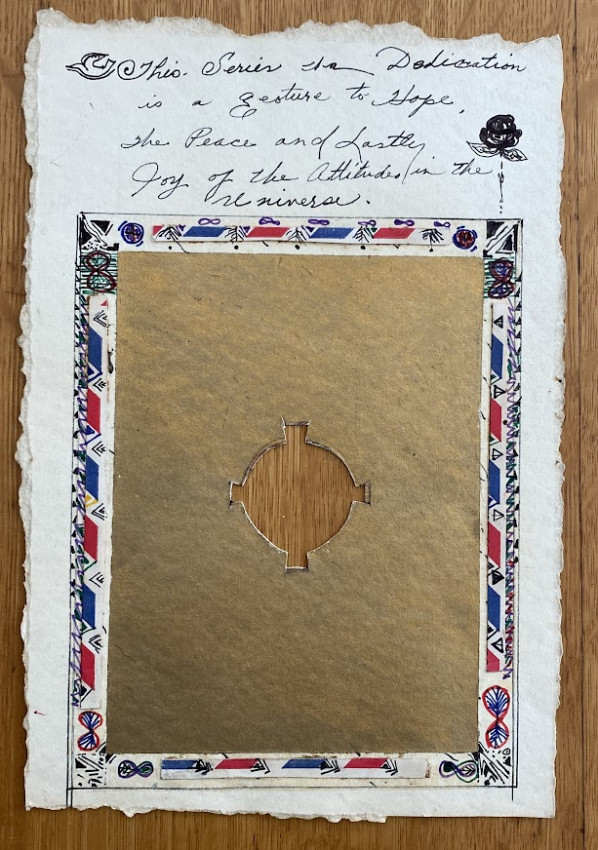 This Series its Dedication
is a gesture to Hope,
the Peace and Lastly
Joy of the Attitudes in the
Universe.